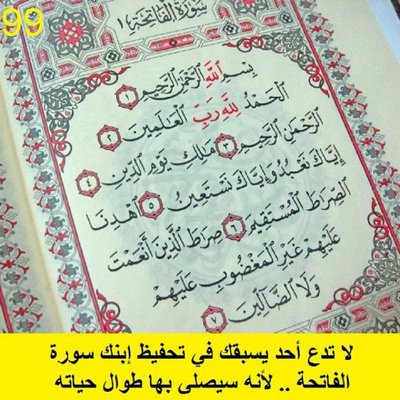 99
سورة الفاتحة ١
بِسْمِ اللَّهِ الرَّحْمَٰنِ الرَّحِيمِ ١
الْحَمْدُ لِلَّهِ رَبِّ الْعَالَمِينَ ٢
الرَّحْمَٰنِ الرَّحِيمِ ٣ مَالِكِ يَوْمِ الدِّينِ ٤
إِيَّاكَ نَعْبُدُ وَإِيَّاكَ نَسْتَعِينُ ٥ اهْدِنَا
الصِّرَاطَ الْمُسْتَقِيمَ ٦ صِرَاطَ الَّذِينَ أَنْعَمْتَ
عَلَيْهِمْ غَيْرِ الْمَغْضُوبِ عَلَيْهِمْ
وَلَا الضَّالِّينَ ٧
لا تدع أحد يسبقك في تحفيظ إبنك سورة
الفاتحة .. لأنه سيصلى بها طوال حياته